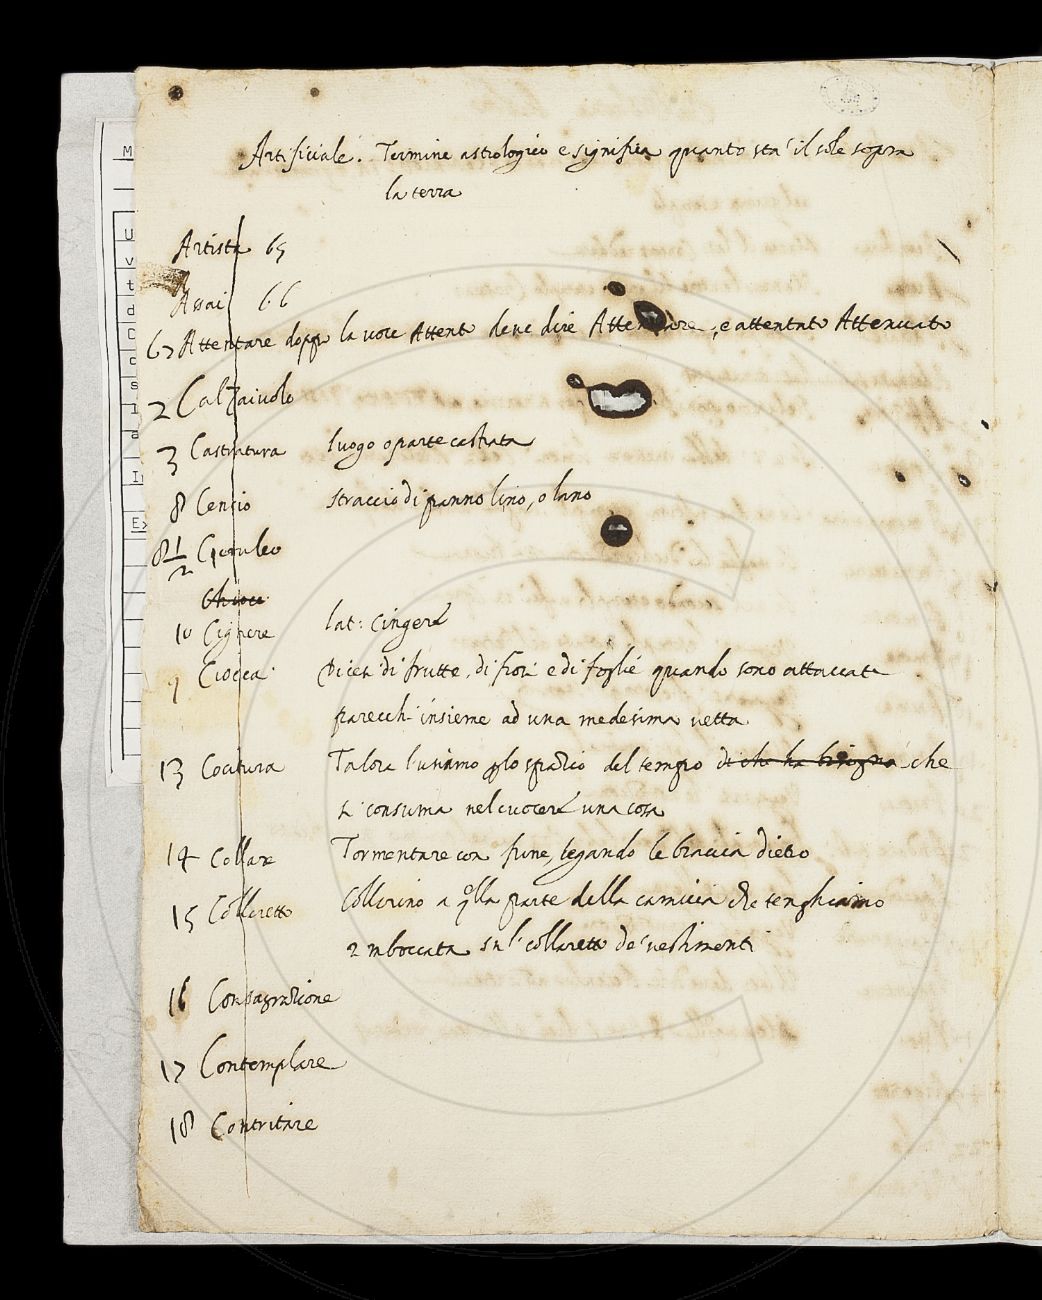 Artificiale. Termine astrologico e significa quanto sta il sole sopra
la terra
Artista 65
Assai 66
67 Attentare doppo la voce Attento deve dire Attentare, e attentato Attenuato
2 Calzaiuolo
3 Castratura luogo o parte castrata
8 Cencio straccio di panno lino, o lano
8 1/2 Ceruleo
10 Cignere lat: Cingere
9 Ciocca Dicesi di frutte, di fiori e di foglie quando sono attaccate
parecchi insieme ad una medesima vetta
13 Cocitura Talora l'usiamo per lo spazio del tempo di che ha bisogno che
si consuma nel cuocere una cosa
14 Collare Tormentare con fune, legando le braccia dietro
15 Colleretto Collarino a qlla parte della camicia che tenghiamo
imboccata sul collaretto de vestimenti
16 Consagrazione
17 Contemplare
18 Contritare